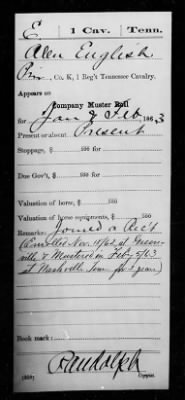 E | 1 Cav. | Tenn.
Alen English
Co. K, 1 Reg't Tennessee Cavalry.
Appears on
Company Muster Roll
for Jan & Feb, 1863
Present or absent Present
Stoppage, $ 100 for
Due Gov't, $ 100 for
Valuation of horse, $ 100
Valuation of horse equipments, $ 100
Remarks: Joined a Rec't
Enrolled Nov 15/62 at Green-
ville & Mustered in Feb /63
at Nashville Tenn for 3 years
Book mark:
Randolph
(358) Copyist.